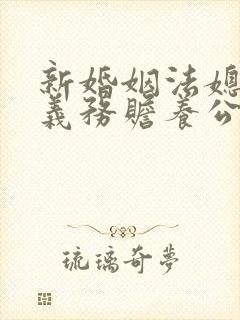 新婚姻法媳
義務贍養公
琉璃奇夢